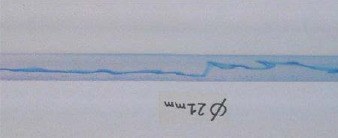 φ21mm